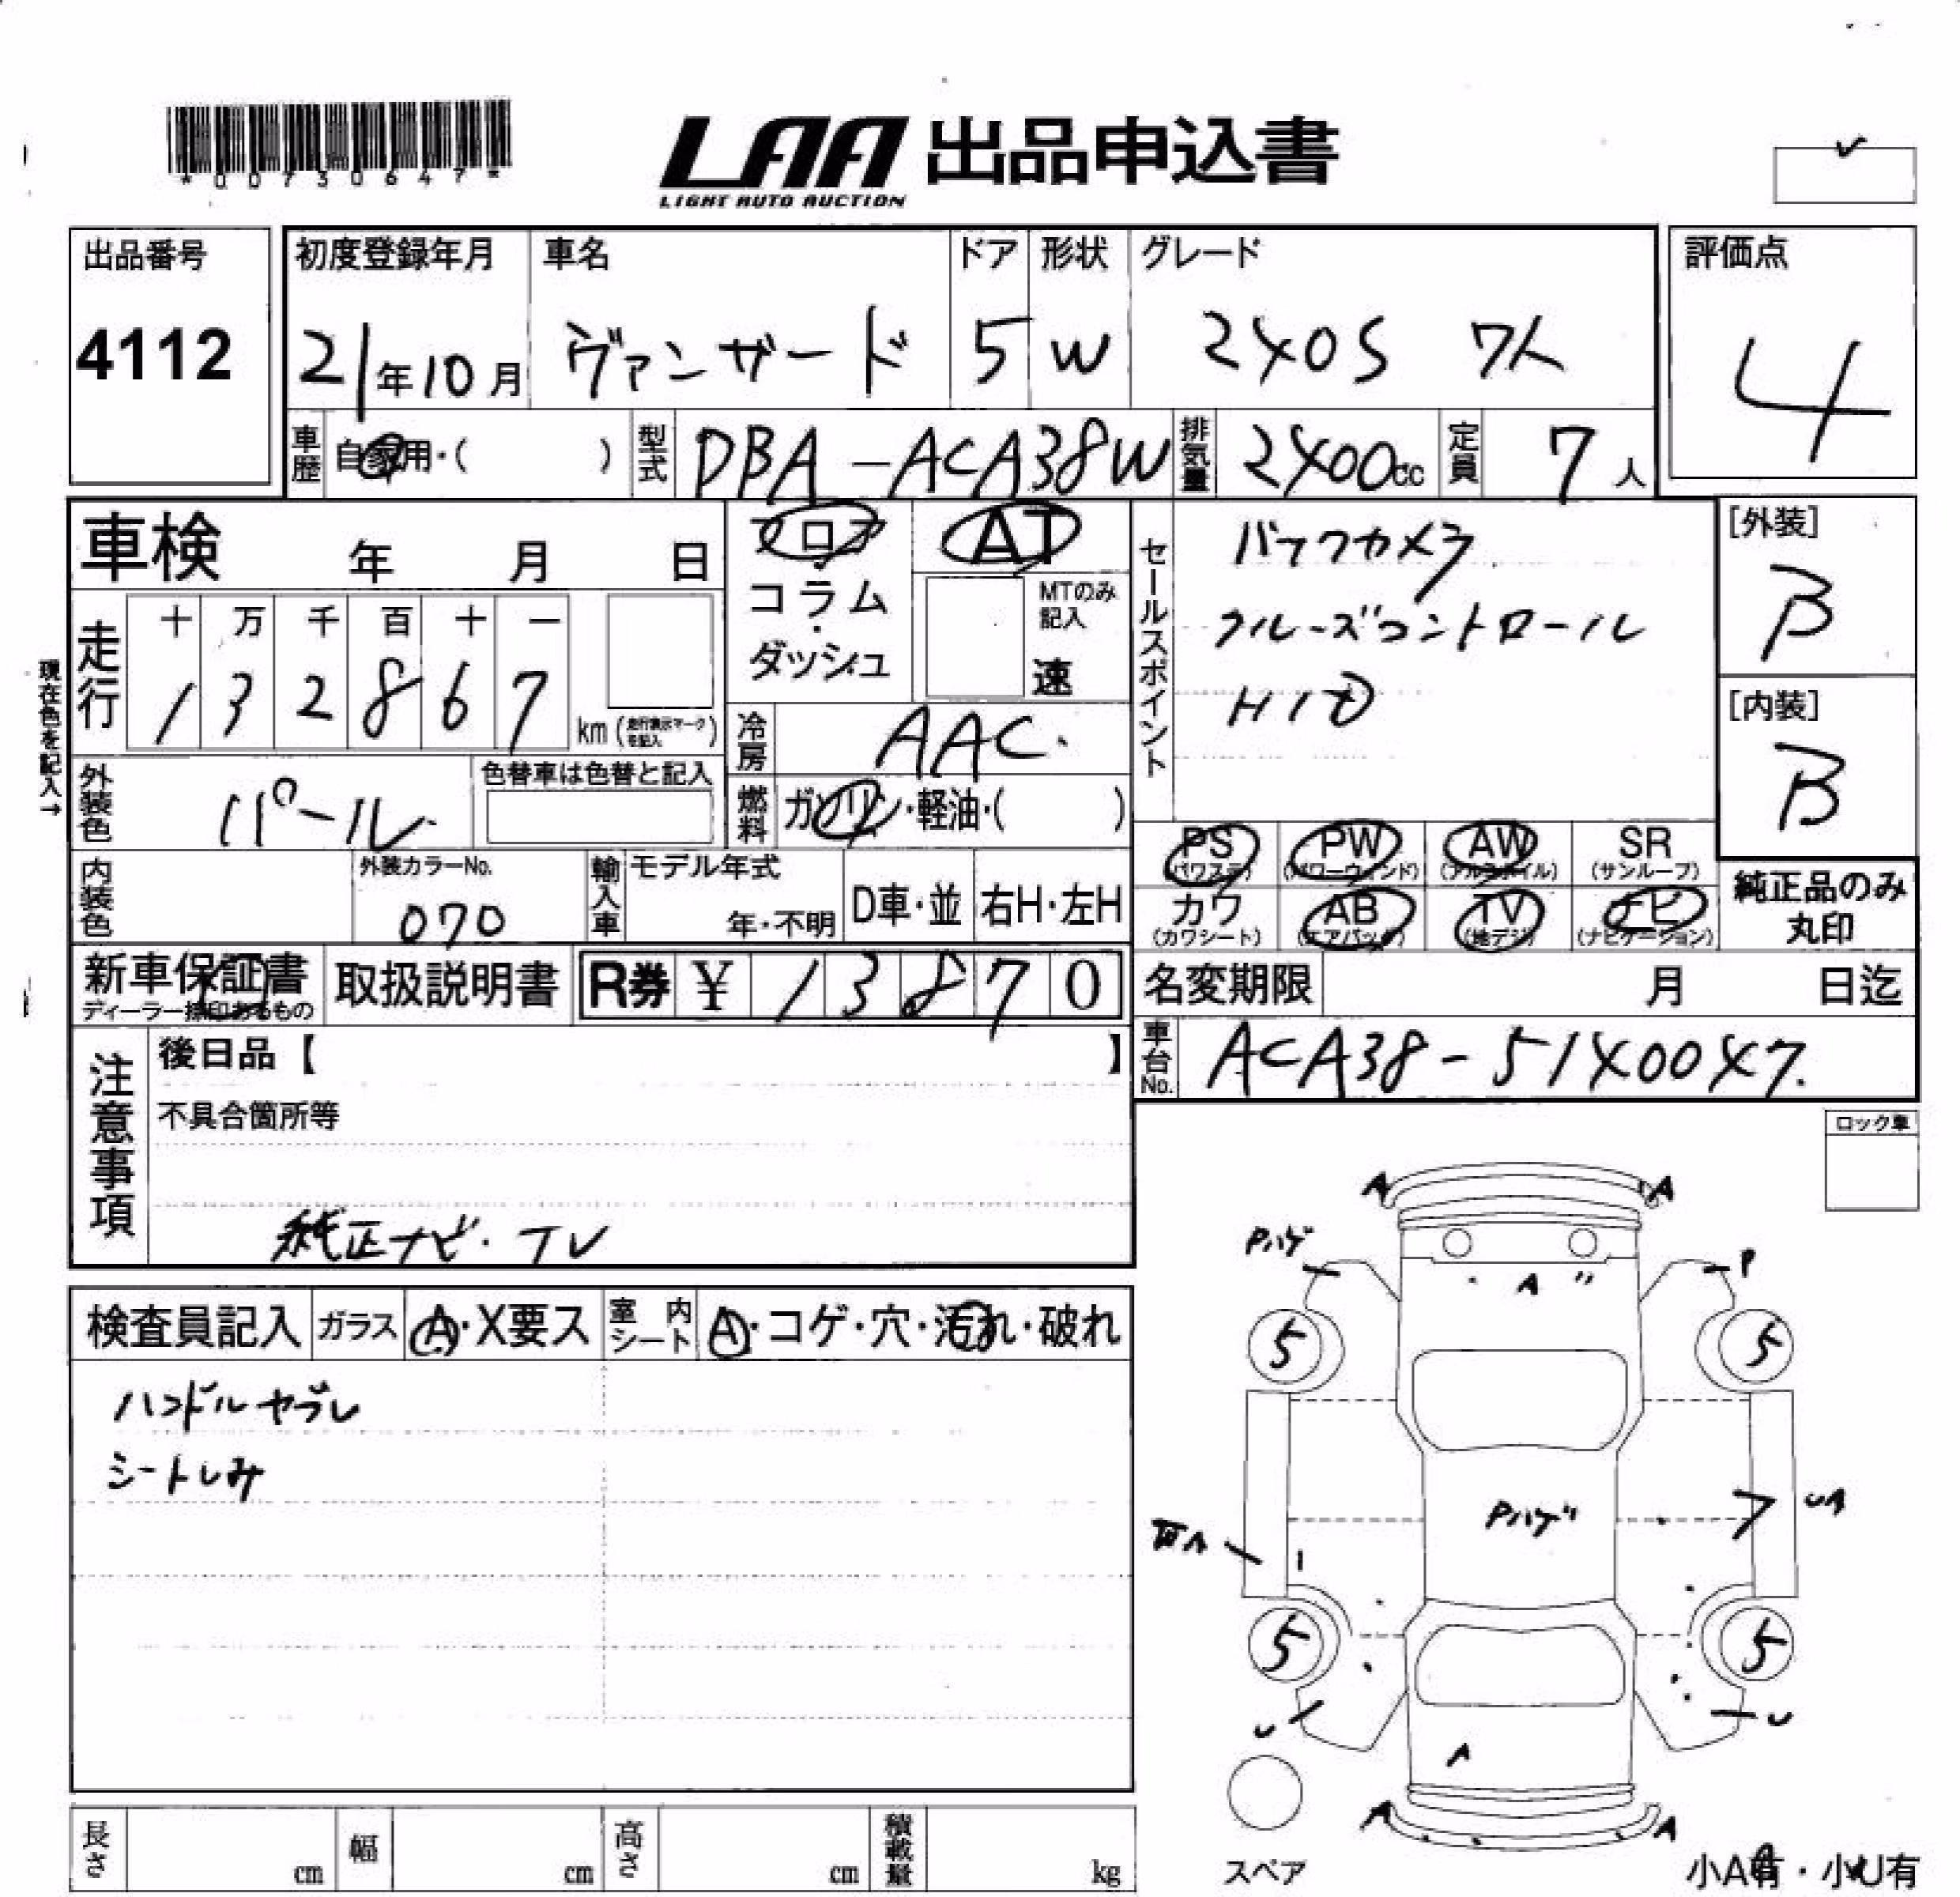 *00730647*
LAA 出品申込書
LIGHT AUTO AUCTION
出品番号
4112
初度登録年月
21年10月
車名
ヴァンガード
ドア
5
形状
W
グレード
240S 7人
評価点
4
車歴
自家用・( )
型式
DBA-ACA38W
排気量
2400cc
定員
7人
車検 年 月 日
フロア
コラム
・
ダッシュ
AT
MTのみ
記入
速
セールスポイント
バックカメラ
クルーズコントロール
HID
[外装]
B
[内装]
B
現在色を記入→
走行
十 万 千 百 十 一
1 3 2 8 6 7
km (走行表示マークを記入)
冷房
AAC.
外装色
パール
色替車は色替と記入
燃料
ガソリン・軽油・( )
PS
(パワステ)
PW
(パワーウィンド)
AW
(アルミホイル)
SR
(サンルーフ)
カワ
(カワシート)
AB
(エアバッグ)
TV
(地デジ)
ナビ
(ナビゲーション)
純正品のみ
丸印
内装色
外装カラーNo.
070
輸入車
モデル年式
年・不明
D車・並
右H・左H
新車保証書
ディーラー捺印あるもの
取扱説明書
R券 ¥ 13870
名変期限 月 日迄
車台No.
ACA38-5140047.
注意事項
後日品【 】
不具合箇所等
純正ナビ・TV
ロック車
検査員記入
ガラス
A・X要ス
室内シート
A・コゲ・穴・汚れ・破れ
ハンドルヤブレ
シートしみ
A A
Pハゲ P
A"
5 5
Pハゲ
UA
5 5
U U
A
A A
スペア
小A有・小U有
長さ cm
幅 cm
高さ cm
積載量 kg